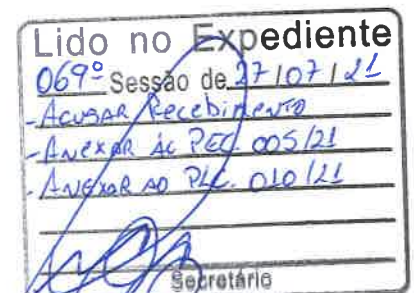 Lido no Expediente
069ª Sessão de 27/07/21
- Acusar Recebimento
- Anexar às PEC. 005/21
- Anexar ao PLC. 010/21
Secretário